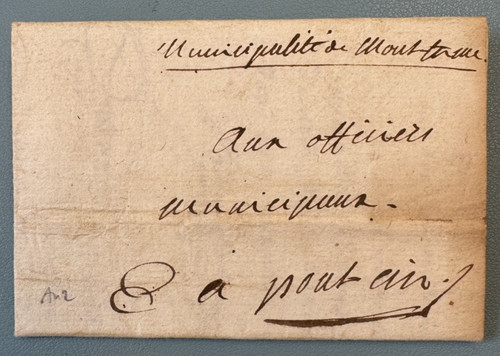 Municipalité de Montfranc.
Aux officiers
municipaux.
à pont cin.
An 2